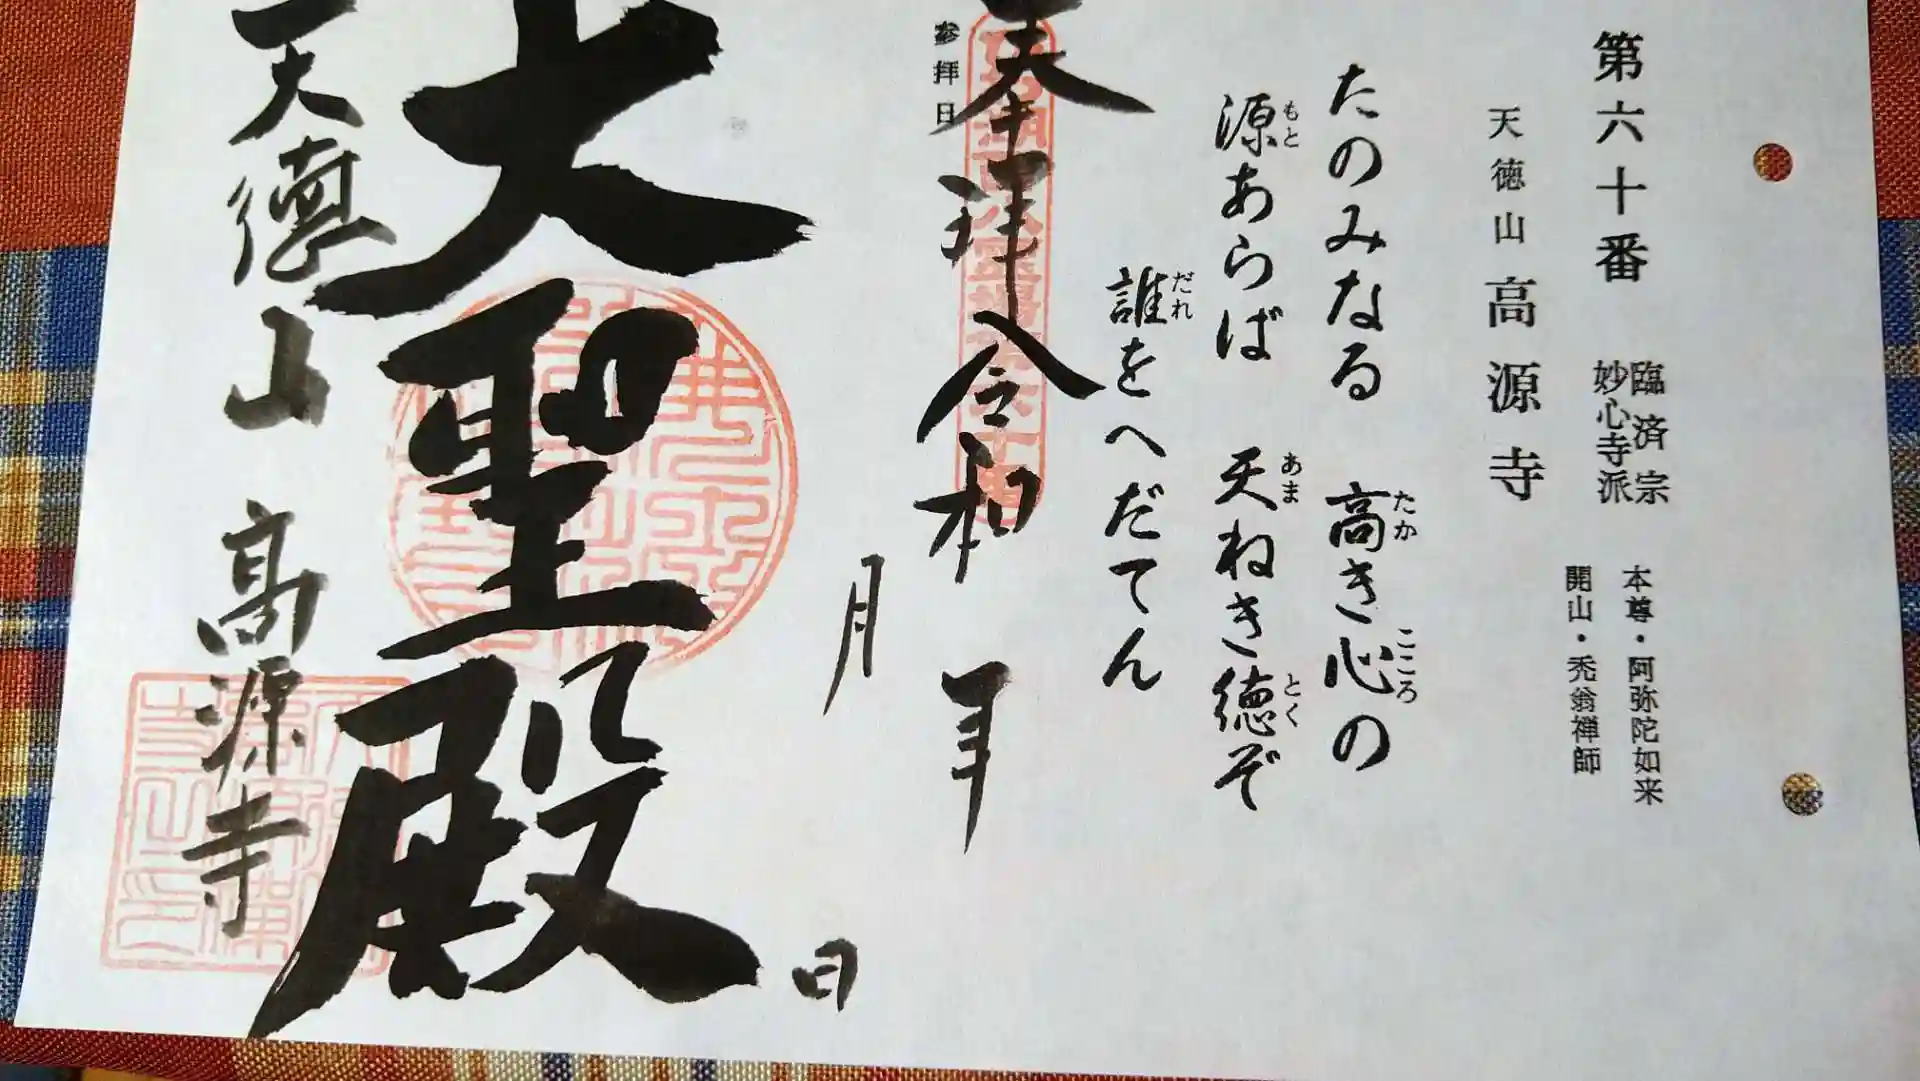 第六十番
臨済宗
妙心寺派
本尊・阿弥陀如来
開山・禿翁禅師
天徳山 高源寺
たのみなる 高き心の
たか こころ
源あらば 天ねき徳ぞ
もと あま とく
誰をへだてん
だれ
参拝日
奉拝 令和 年
月
日
大聖殿
天徳山 高源寺